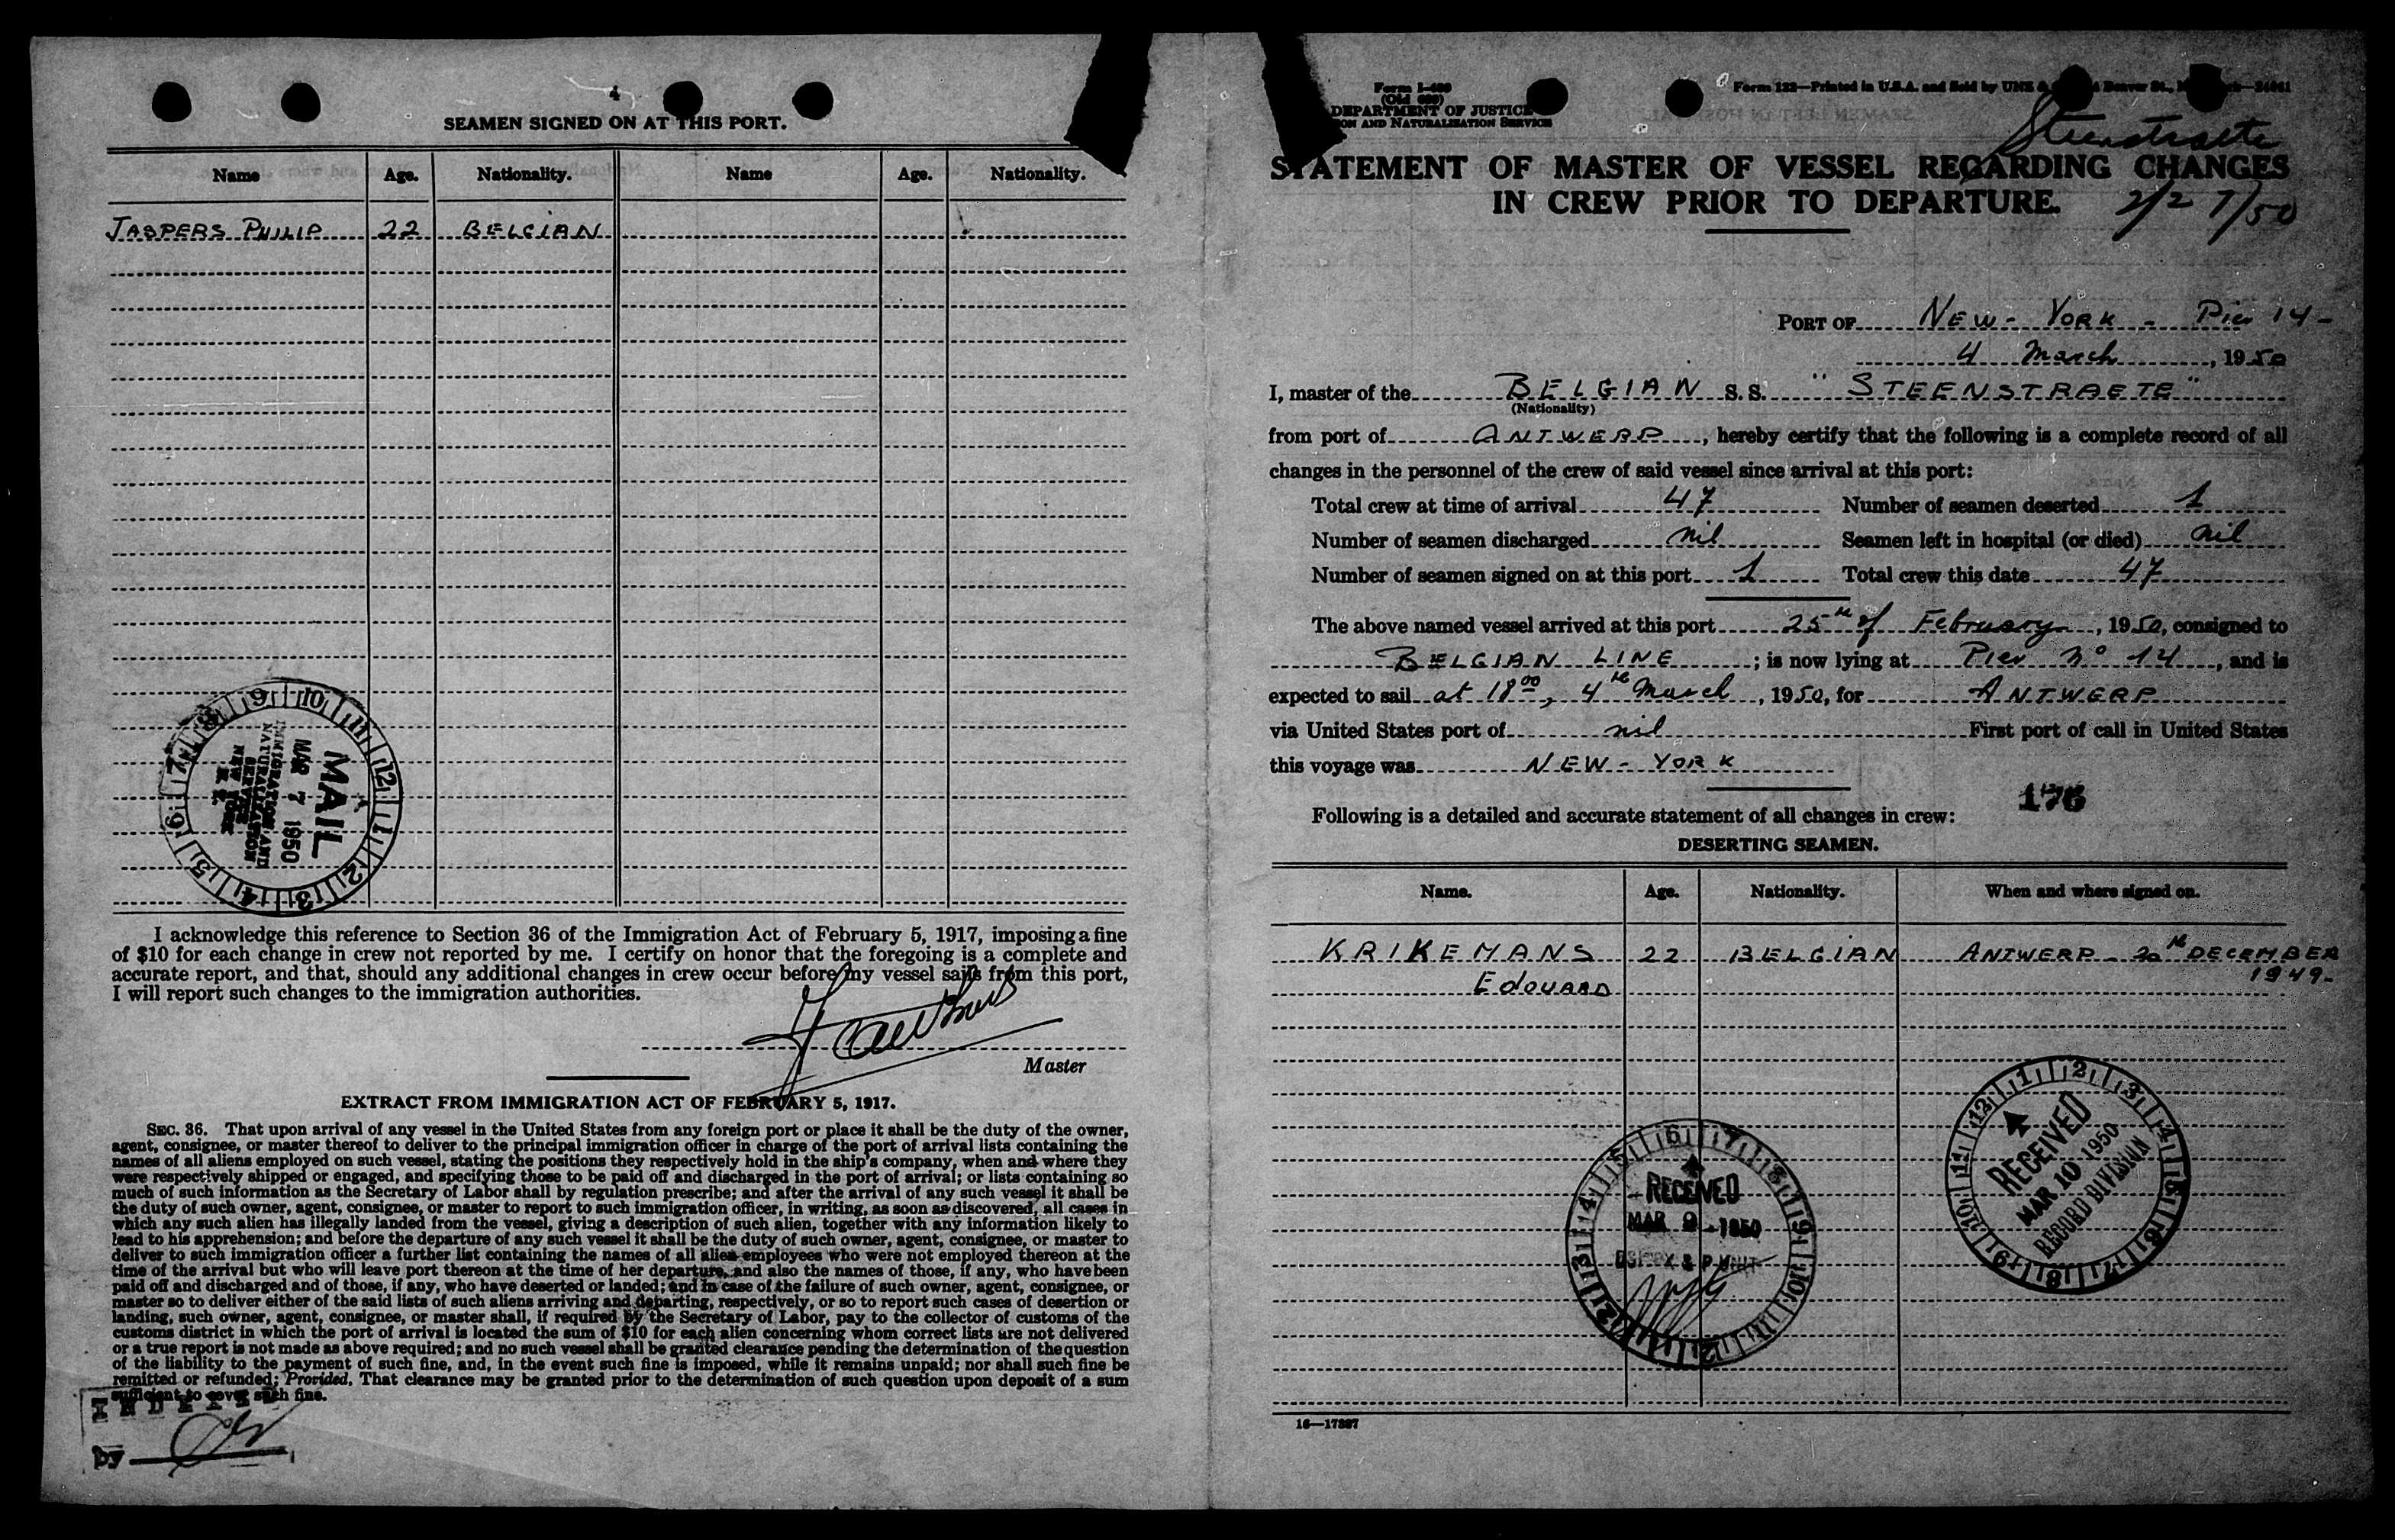 4
SEAMEN SIGNED ON AT THIS PORT.
Name Age. Nationality. Name Age. Nationality.
JASPERS PHILIP 22 BELGIAN
MAIL
MAR 7 1950
IMMIGRATION AND
NATURALIZATION
SERVICE
NEW YORK
I acknowledge this reference to Section 36 of the Immigration Act of February 5, 1917, imposing a fine
of $10 for each change in crew not reported by me. I certify on honor that the foregoing is a complete and
accurate report, and that, should any additional changes in crew occur before my vessel sails from this port,
I will report such changes to the immigration authorities.
Master
EXTRACT FROM IMMIGRATION ACT OF FEBRUARY 5, 1917.
SEC. 36. That upon arrival of any vessel in the United States from any foreign port or place it shall be the duty of the owner,
agent, consignee, or master thereof to deliver to the principal immigration officer in charge of the port of arrival lists containing the
names of all aliens employed on such vessel, stating the positions they respectively hold in the ship's company, when and where they
were respectively shipped or engaged, and specifying those to be paid off and discharged in the port of arrival; or lists containing so
much of such information as the Secretary of Labor shall by regulation prescribe; and after the arrival of any such vessel it shall be
the duty of such owner, agent, consignee, or master to report to such immigration officer, in writing, as soon as discovered, all cases in
which any such alien has illegally landed from the vessel, giving a description of such alien, together with any information likely to
lead to his apprehension; and before the departure of any such vessel it shall be the duty of such owner, agent, consignee, or master to
deliver to such immigration officer a further list containing the names of all alien employees who were not employed thereon at the
time of the arrival but who will leave port thereon at the time of her departure, and also the names of those, if any, who have been
paid off and discharged and of those, if any, who have deserted or landed; and in case of the failure of such owner, agent, consignee, or
master so to deliver either of the said lists of such aliens arriving and departing, respectively, or so to report such cases of desertion or
landing, such owner, agent, consignee, or master shall, if required by the Secretary of Labor, pay to the collector of customs of the
customs district in which the port of arrival is located the sum of $10 for each alien concerning whom correct lists are not delivered
or a true report is not made as above required; and no such vessel shall be granted clearance pending the determination of the question
of the liability to the payment of such fine, and, in the event such fine is imposed, while it remains unpaid; nor shall such fine be
remitted or refunded; Provided, That clearance may be granted prior to the determination of such question upon deposit of a sum
sufficient to cover such fine.
by
Form I-489
DEPARTMENT OF JUSTICE
NATURALIZATION SERVICE
Form 122—Printed in U.S.A. and Sold by UNZ &
Steenstraete
STATEMENT OF MASTER OF VESSEL REGARDING CHANGES
IN CREW PRIOR TO DEPARTURE.
PORT OF NEW-YORK - Pier 14-
4 March, 1950
I, master of the BELGIAN S.S. "STEENSTRAETE"
(Nationality)
from port of ANTWERP, hereby certify that the following is a complete record of all
changes in the personnel of the crew of said vessel since arrival at this port:
Total crew at time of arrival 47 Number of seamen deserted 1
Number of seamen discharged nil Seamen left in hospital (or died) nil
Number of seamen signed on at this port 1 Total crew this date 47
The above named vessel arrived at this port 25th of February, 1950, consigned to
BELGIAN LINE; is now lying at Pier N° 14, and is
expected to sail at 18 00, 4th March, 1950, for ANTWERP
via United States port of nil First port of call in United States
this voyage was NEW-YORK
176
Following is a detailed and accurate statement of all changes in crew:
DESERTING SEAMEN.
Name. Age. Nationality. When and where signed on.
KRIKEMANS 22 BELGIAN ANTWERP - DECEMBER
Edouard 1949-
RECEIVED
MAR 10 1950
RECORD DIVISION
RECEIVED
MAR 9 - 1950
16—17397